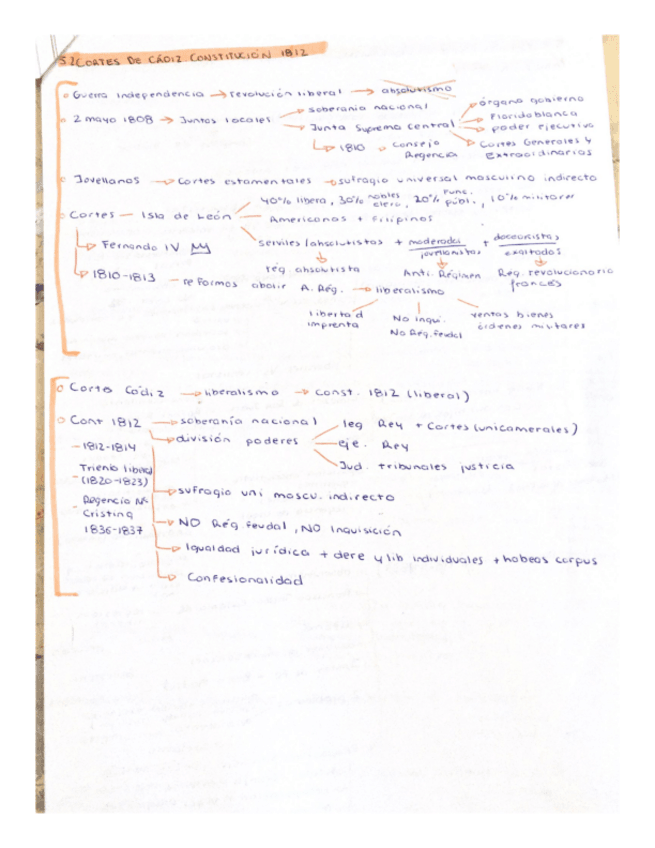 5.2 CORTES DE CÁDIZ CONSTITUCIÓN 1812
Guerra Independencia → revolución liberal → absolutismo
soberanía nacional
órgano gobierno
2 mayo 1808 → Juntas locales
Junta Suprema Central
Floridablanca
poder ejecutivo
1810 → Consejo Regencia
Cortes Generales y Extraordinarias
Jovellanos → Cortes estamentales → sufragio universal masculino indirecto
40% libera, 30% nobles clero, 20% func. públ., 10% militares
Cortes — Isla de León
Americanos + Filipinos
Fernando IV
serviles/absolutistas + moderados jovellanistas + doceañistas exaltados
reg. absolutista
Anti. Régimen
Reg. revolucionario francés
1810-1813 — reformas abolir A. Rég. → liberalismo
libertad imprenta
No Inqui.
No Rég. feudal
ventas bienes órdenes militares
Cortes Cádiz → liberalismo → Const. 1812 (liberal)
Cont 1812 → soberanía nacional
división poderes
leg Rey + Cortes (unicamerales)
eje. Rey
Jud. tribunales justicia
- 1812-1814
Trienio liberal
- (1820-1823)
- Regencia Mª
Cristina
1836-1837
sufragio uni mascu. indirecto
NO Rég feudal, NO Inquisición
Igualdad jurídica + dere y lib individuales + habeas corpus
Confesionalidad